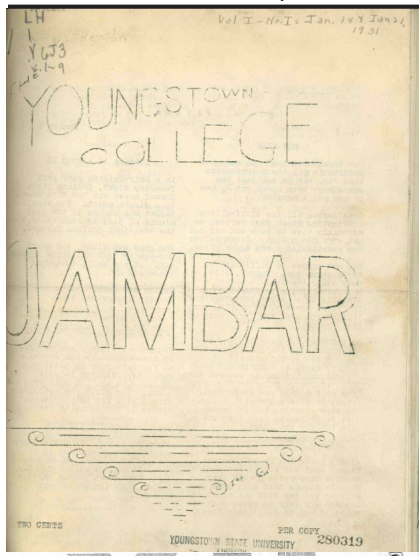 LH
1
.Y6J3
v.1-9
Vol I - No. I = Jan. 14 & Jan 21,
1931
YOUNGSTOWN
COLLEGE
JAMBAR
TWO CENTS
PER COPY
YOUNGSTOWN STATE UNIVERSITY 280319